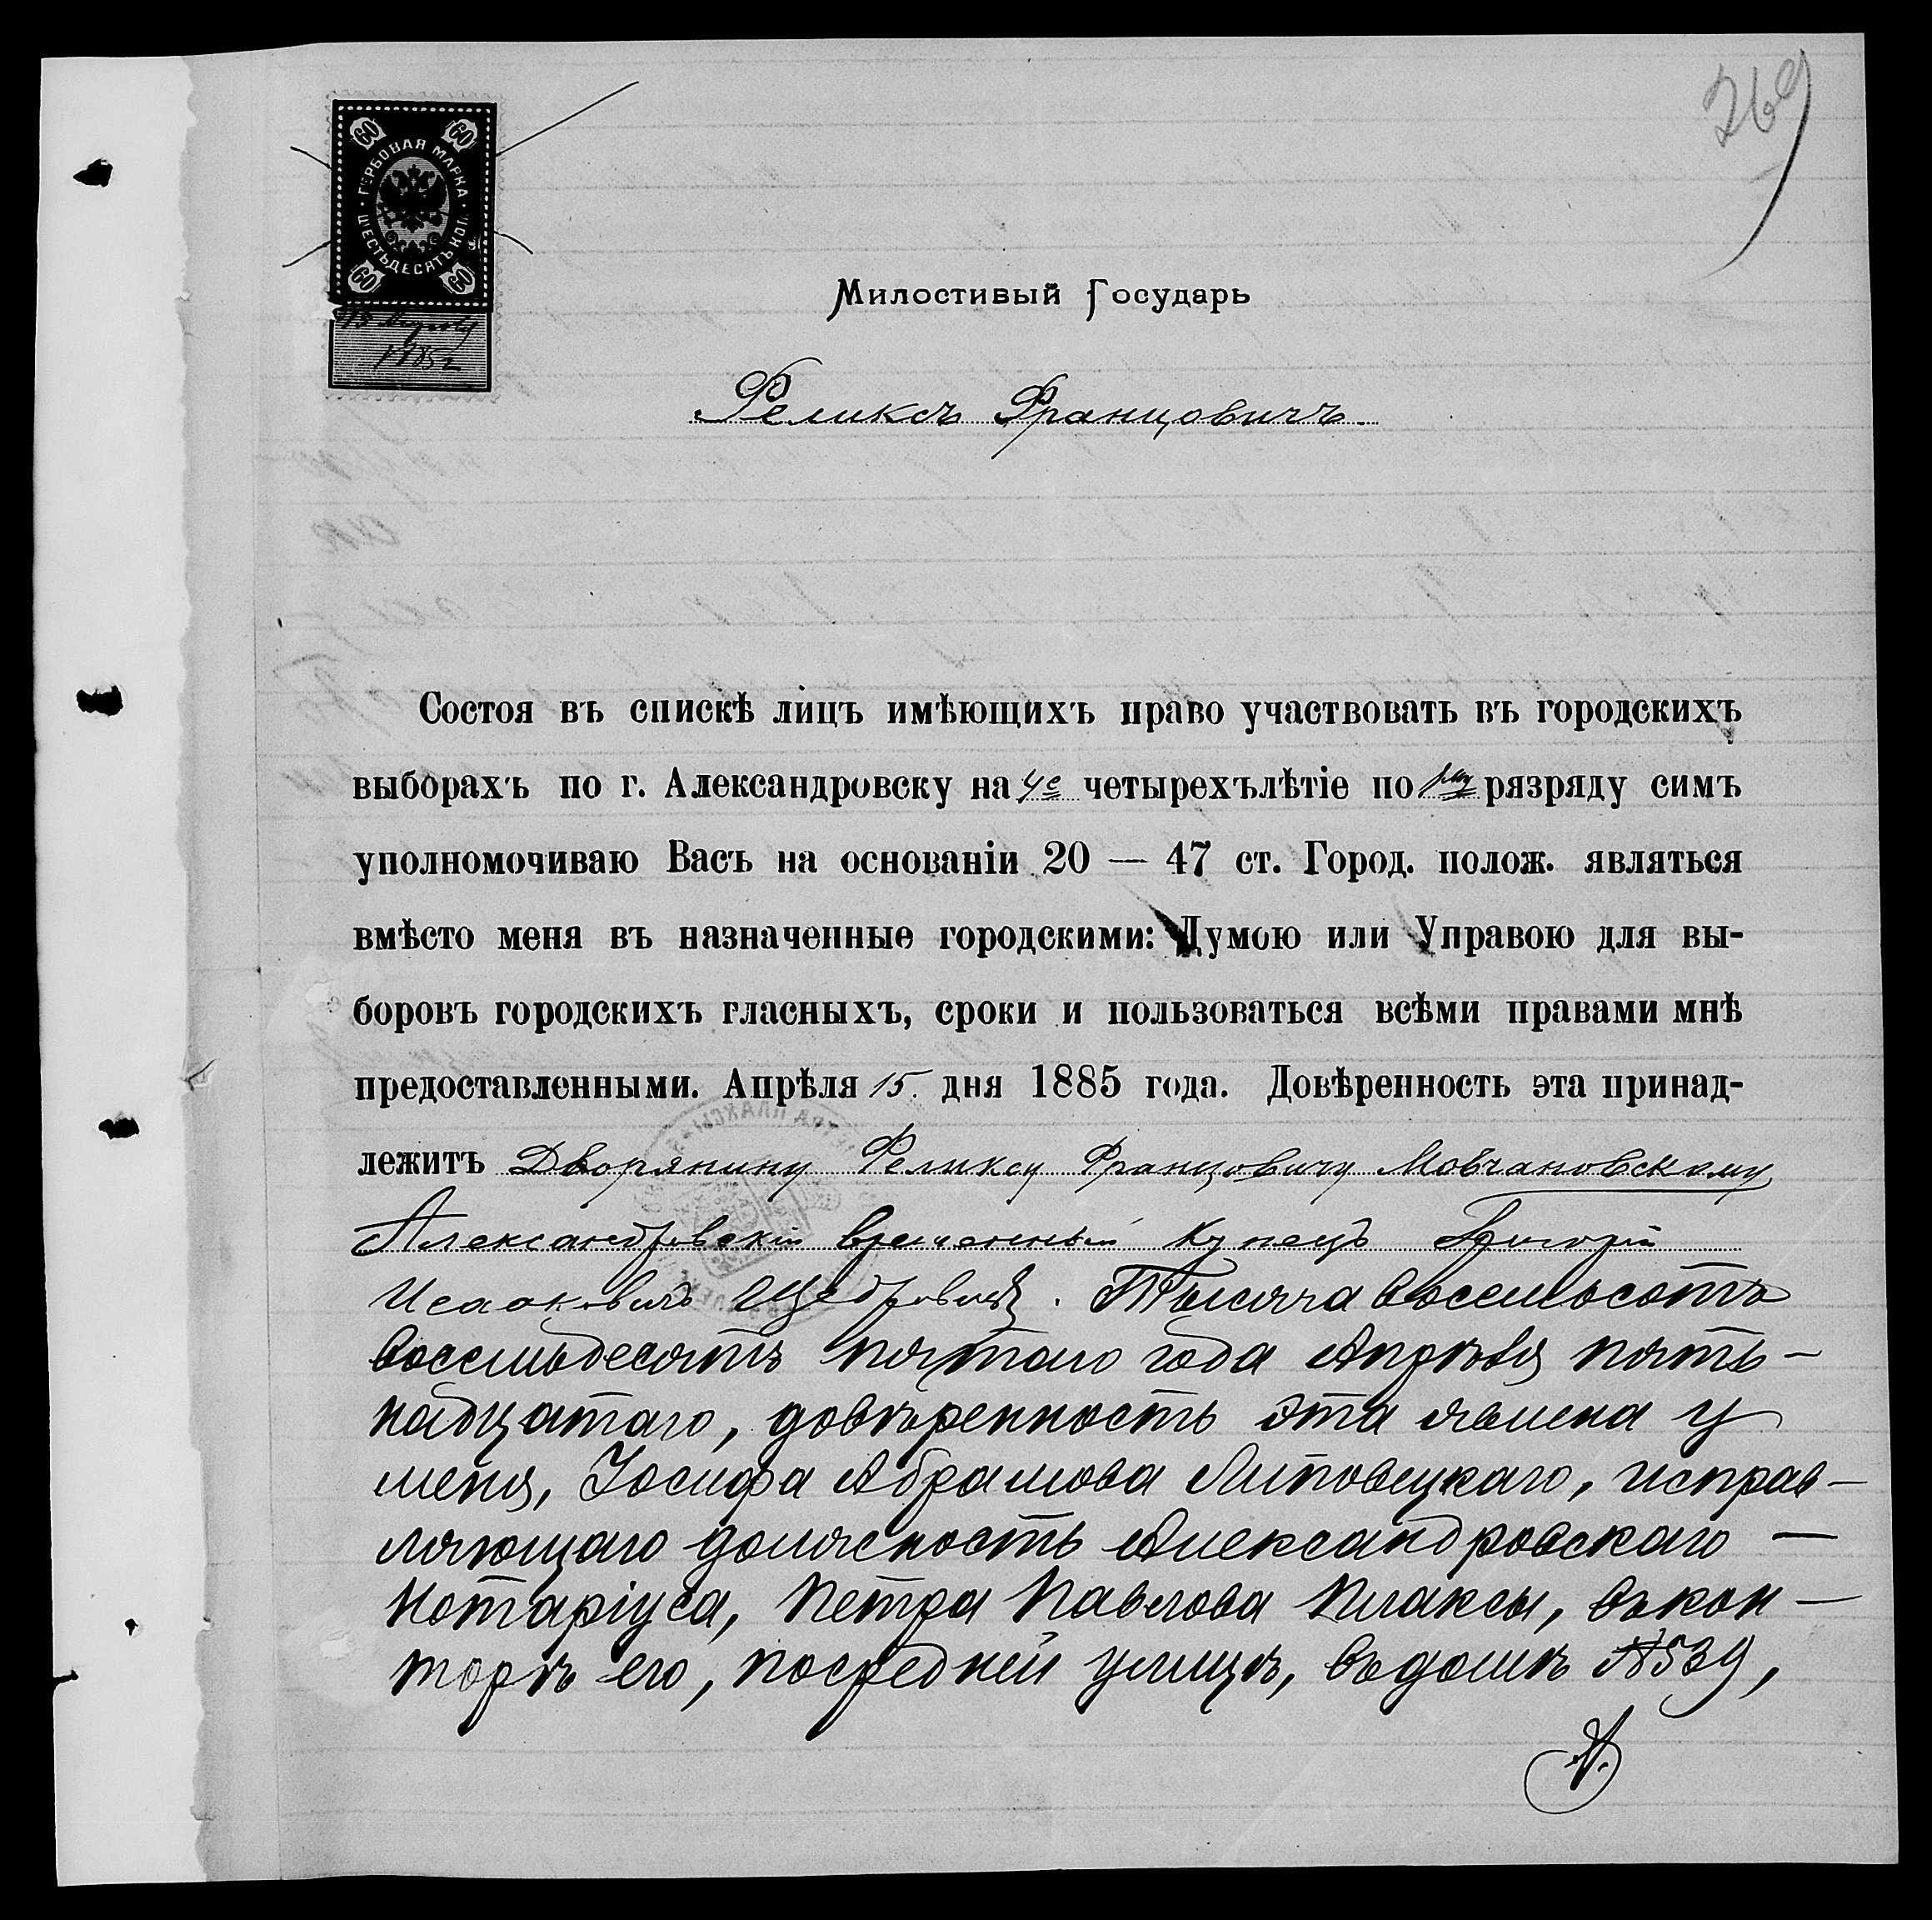 269
60 60
ГЕРБОВАЯ МАРКА
ШЕСТЬДЕСЯТЪ КОП.
60 60
15 Апрѣля
1885 г
Милостивый Государь
Феликсъ Францовичъ.
Состоя въ спискѣ лицъ имѣющихъ право участвовать въ городскихъ
выборахъ по г. Александровску на 4е четырехълѣтіе по 1му рязряду симъ
уполномочиваю Васъ на основаніи 20 — 47 ст. Город. полож. являться
вмѣсто меня въ назначенные городскими: Думою или Управою для вы-
боровъ городскихъ гласныхъ, сроки и пользоваться всѣми правами мнѣ
предоставленными. Апрѣля 15. дня 1885 года. Довѣренность эта принад-
лежитъ Дворянину Феликсу Францовичу Мовчановскому
Александровскій временный купецъ Григорій
Исааковичъ Щедровицкій. Тысяча восемьсотъ
восемьдесятъ пятаго года Апрѣля пять-
надцатаго, довѣренность эта явлена у
меня, Іосифа Абрамова Литовецкаго, исправ-
ляющаго должность Александровскаго —
Нотаріуса, Петра Павлова Плаксы, въ кон-
торѣ его, по средней улицѣ, въ домѣ №539,